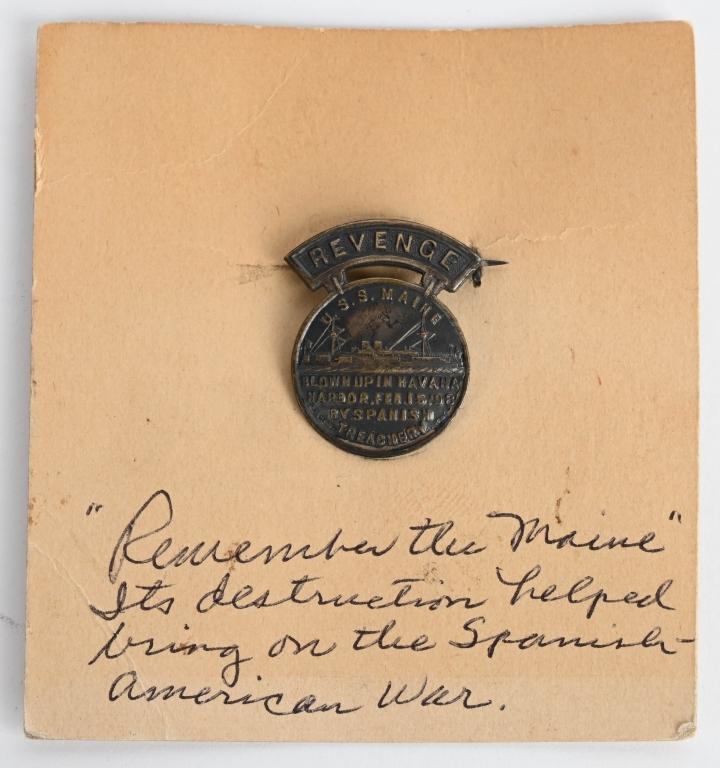 REVENGE
U.S.S. MAINE
BLOWN UP IN HAVANA
HARBOR, FEB. 15, '98
BY SPANISH
TREACHERY
"Remember the Maine"
Its destruction helped
bring on the Spanish-
American War.